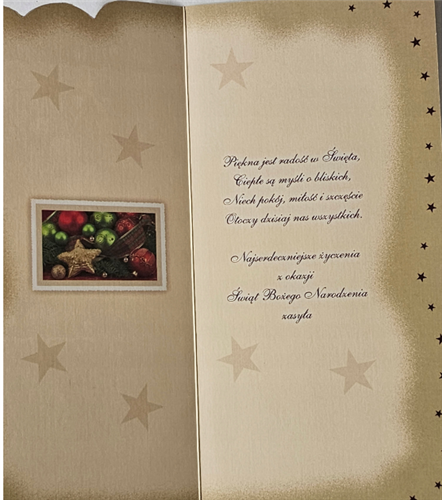 Piękna jest radość w Święta,
Ciepłe są myśli o bliskich,
Niech pokój, miłość i szczęście
Otoczy dzisiaj nas wszystkich.
Najserdeczniejsze życzenia
z okazji
Świąt Bożego Narodzenia
zasyła